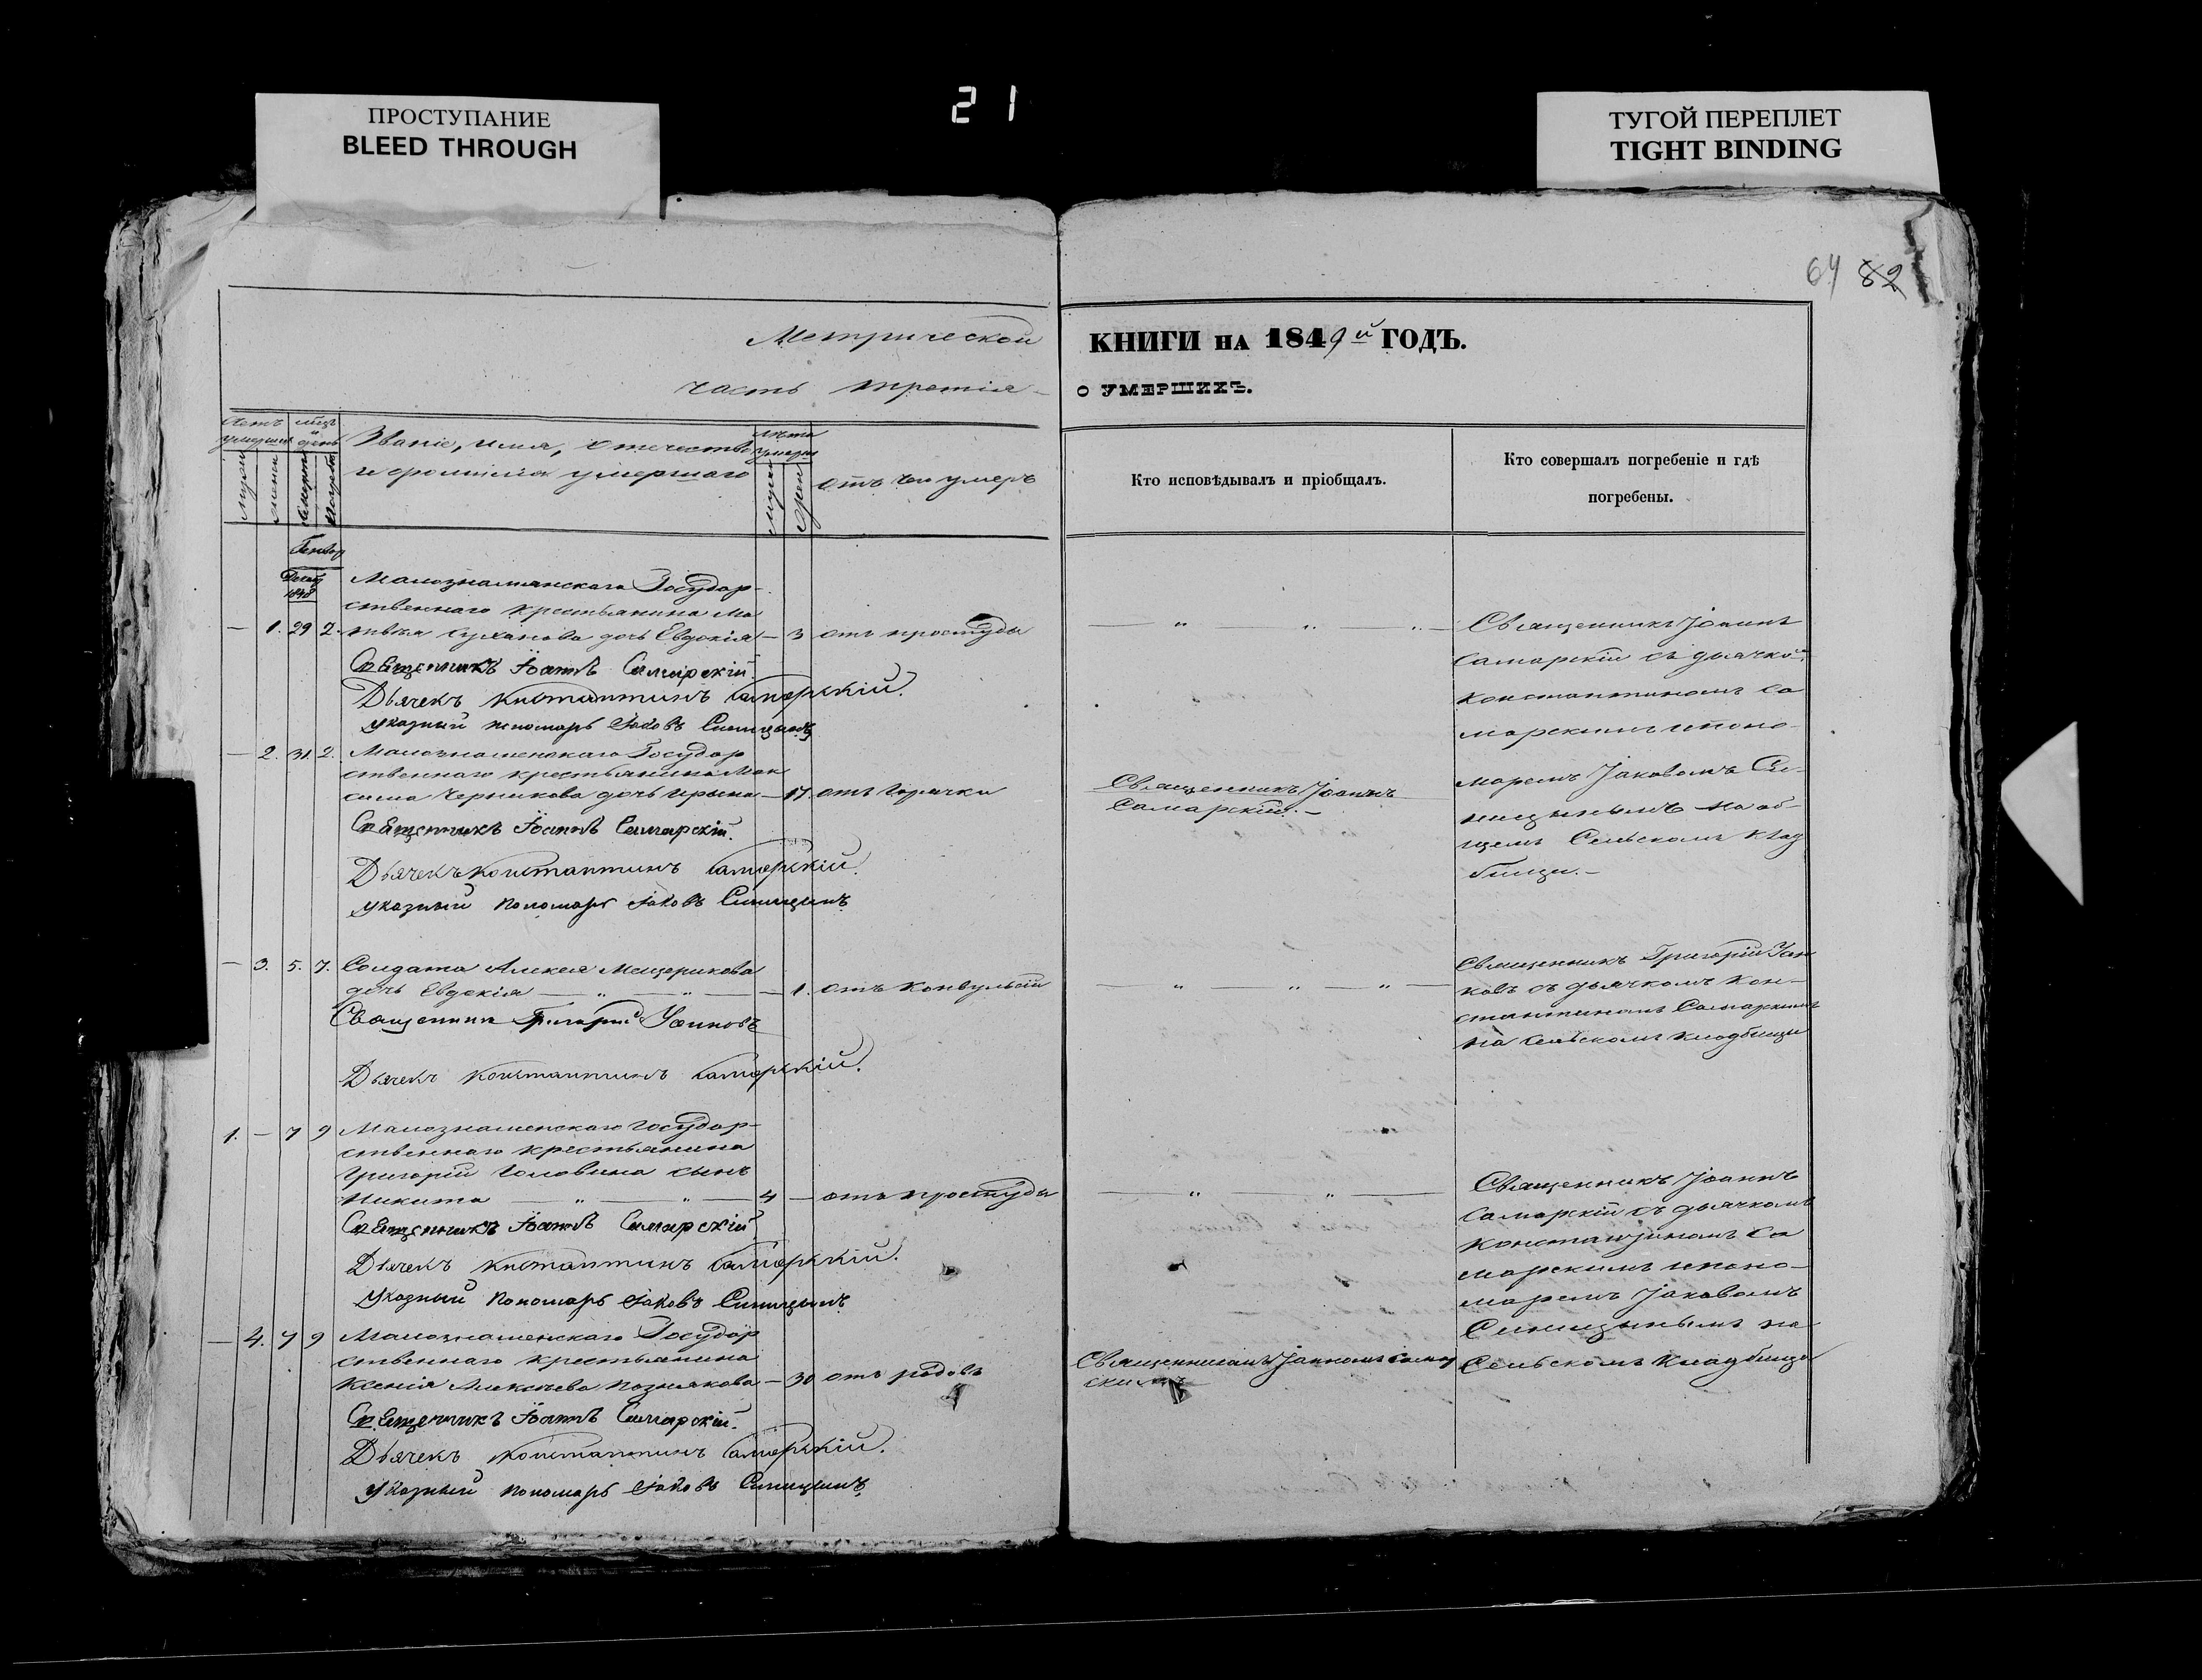 21
ПРОСТУПАНИЕ
BLEED THROUGH
ТУГОЙ ПЕРЕПЛЕТ
TIGHT BINDING
64 82
Метрической
часть третія
Званіе, имя, отечество
и фамилія умершаго
отъ чего умеръ
Генвар
Декаб
1848
Малознаменскаго Государ-
ственнаго крестьянина Ма
— 1. 29 2. твѣя Суханова дочь Евдокія — 3 отъ простуды
Священникъ Іоаннъ Самарскій.
Дьячекъ Константинъ Самарскій.
Указный пономарь Іаковъ Синицынъ
— 2. 31. 2. Малознаменскаго Государ
ственнаго крестьянина Мак
сима Черникова дочь Ирина — 17. отъ горячки
Священникъ Іоаннъ Самарскій.
Дьячекъ Константинъ Самарскій.
Указный пономарь Іаковъ Синицынъ
— 3. 5. 7. Солдата Алексея Мещерикова
дочь Евдокія — „ — „ — — 1. отъ конвульсій
Священникъ Григорій
Дьячекъ Константинъ Самарскій.
1. — 7 9 Малознаменскаго Государ-
ственнаго крестьянина
Григорія Головина сынъ
Никита — „ — „ — 4 — отъ простуды
Священникъ Іоаннъ Самарскій
Дьячекъ Константинъ Самарскій.
Указный пономарь Іаковъ Синицынъ
— 4. 7 9 Малознаменскаго Государ
ственнаго крестьянина
Ксенія Алексѣева Познякова — 30 отъ родовъ
Священникъ Іоаннъ Самарскій.
Дьячекъ Константинъ Самарскій.
Указный пономарь Іаковъ Синицынъ
КНИГИ НА 1849й ГОДЪ.
О УМЕРШИХЪ.
Кто исповѣдывалъ и пріобщалъ.
Кто совершалъ погребеніе и гдѣ
погребены.
Священникъ Іоаннъ
Самарскій съ дьячко-
Константиномъ Са
марскимъ и поно-
маремъ Іаковомъ Си-
ницынымъ на об-
щемъ Сельскомъ клад
бищи.-
Священникъ Іоаннъ
Самарскій.-
Священникъ Григорій
съ дьячкомъ Кон-
стантиномъ Самарскимъ
на Сельскомъ кладбищи
Священникъ Іоаннъ
Самарскій съ дьячкомъ
Константиномъ Са
марскимъ и поно-
маремъ Іаковомъ
Синицынымъ на
Сельскомъ кладбище
Священникомъ Іоанномъ Самар
скимъ